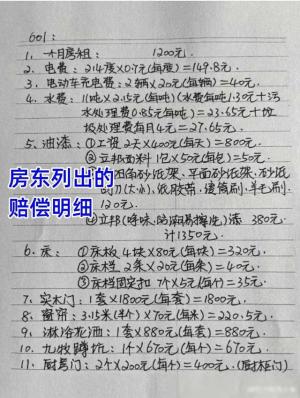 601:
1、一个月房租: 1200元.
2、电费: 214度×0.7元(每度)=149.8元.
3、电动车充电费: 2辆×20元(每辆)=40元.
4、水费: 11吨×2.15元(每吨)(水费每吨1.30元+污
水处理费0.85元每吨)=23.65元+垃
圾处理费每月4元=27.65元.
5、油漆: ①工资 2天×400元(每天)=800元.
②立邦面料 1包×50元(每包)=50元.
砂纸架、平面砂纸架、砂纸
刮刀(大小)、纸胶带、滚筒刷、羊毛刷
120元.
④立邦 漆 380元.
计1350元.
6、床: ①床板 4块×80元(每块)=320元.
②床档 2条×20元(每条)=40元.
③床档固定扣 7个×5元(每个)=35元.
7、实木门: 1套×1800元(每套)=1800元.
8、窗帘: 3.15米(个)×70元(每米)=220.5元.
9、淋浴花洒: 1套×880元(每套)=880元.
10、九牧蹲坑: 1个×670元(每个)=670元.
11、厨房门: 2个×200元(每个)=400元.(厨柜门)
房东列出的
赔偿明细